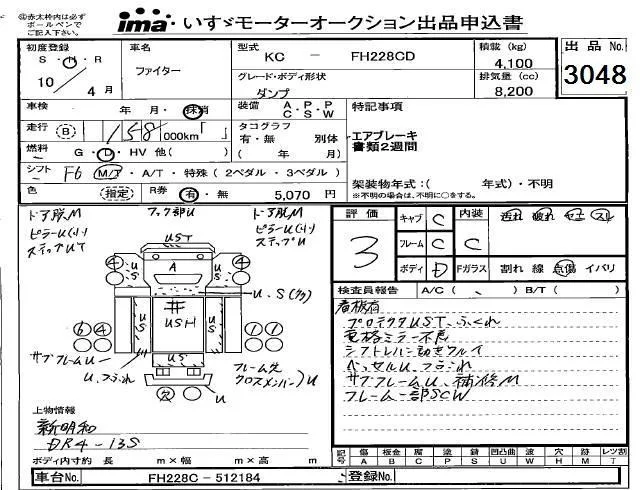 ㊟赤太枠内は必ず
ボールペンで
ご記入下さい。
ima いすゞモーターオークション出品申込書
初度登録
S・H・R
10 年 4月
車名
ファイター
型式
KC － FH228CD
グレード・ボディ形状
ダンプ
積載 (kg)
4,100
排気量 (cc)
8,200
出品 No.
3048
車検 年 月・抹消
装備 A.P.P
C.S.W
特記事項
エアブレーキ
書類2週間
走行 (B) 158,000km
タコグラフ
有・無 別体
( 年 月)
燃料 G・D・HV 他( )
シフト F6 M/T・A/T・特殊 (2ペダル・3ペダル)
架装物年式:( 年式)・不明
※不明の場合は、不明に○をする。
色 (指定) R券 有・無 5,070 円
ドア脱M
ピラーU(小)
ステップUT
フック部U
ドア脱M
ピラーU(小)
ステップU
UST
A
U
S
4
4
U、S(多)
USH
6 4
1 1
サブフレームU
U、フふれ
フレーム穴
クロスメンバーU
欠
評価
3
キャブ C
内装 汚れ 破れ セニ スレ
フレーム C C
ボディ D
Fガラス 割れ 線 点傷 イバリ
検査員報告 A/C ( 、 ) B/T ( )
看板有
プロテクタUST、ふくれ
電格ミラー不良
シフトレバー動きワルイ
ベッセルU、フふれ
サブフレームU、補修M
フレーム一部SCW
上物情報
新明和
DR4-13S
ボディ内寸約 長 m×幅 m×高 m
記号 傷 板金 腐 塗 錆 凹凸曲 波 穴 跡 レツ割
A B C P S U W H M T
車台No. FH228C－512184
登録No.